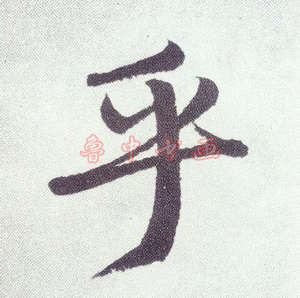 乎
鲁中书画